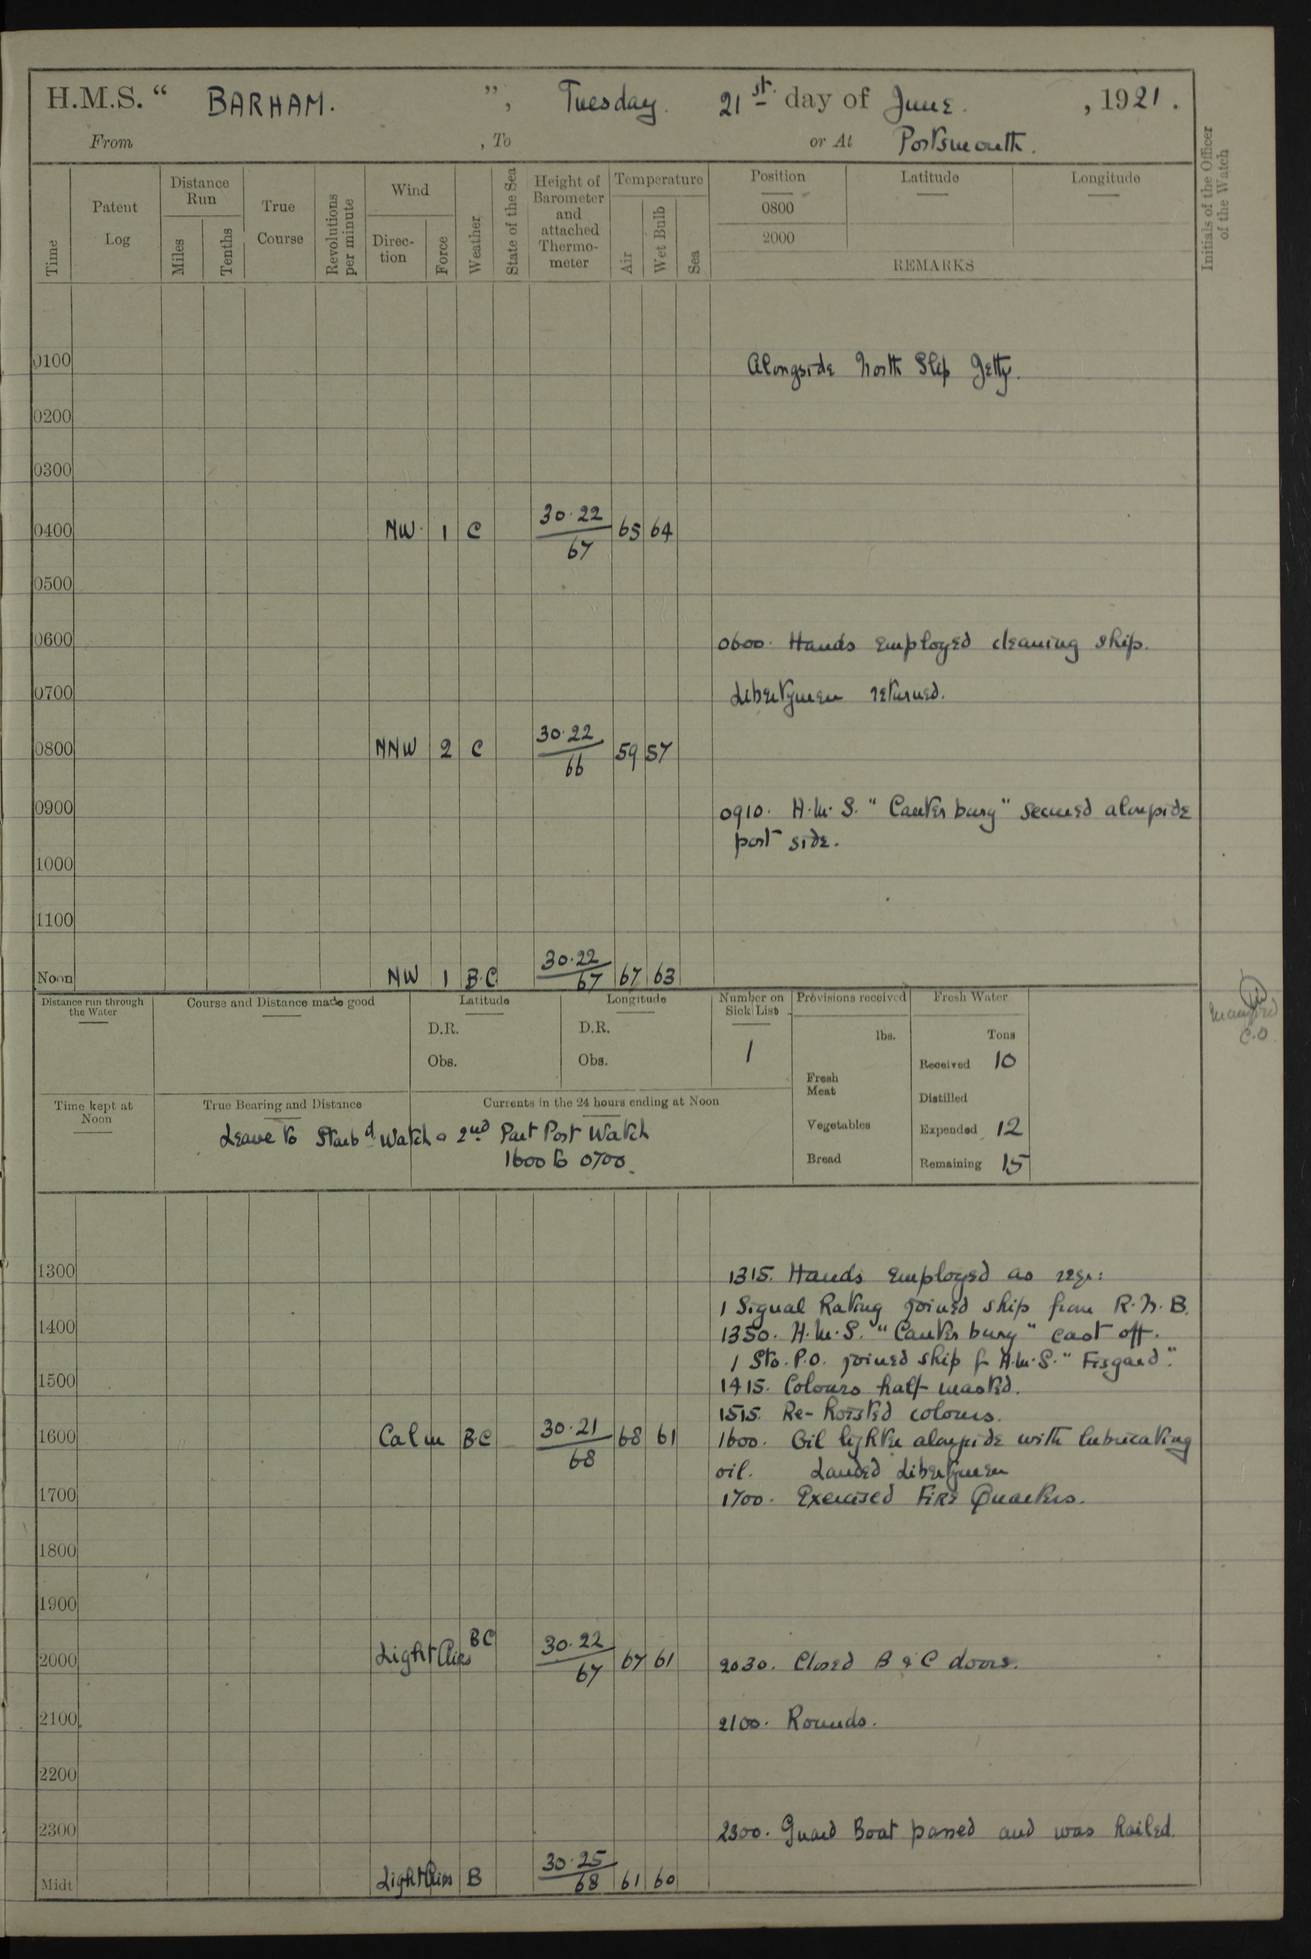 H.M.S. “ BARHAM. ”, Tuesday. 21st. day of June. , 1921.
From , To or At Portsmouth.
Time
Patent Log
Distance Run
Miles
Tenths
True Course
Revolutions per minute
Wind
Direc-tion
Force
Weather
State of the Sea
Height of Barometer and attached Thermo-meter
Temperature
Air
Wet Bulb
Sea
Position
0800
2000
Latitude
Longitude
REMARKS
Initials of the Officer of the Watch
0100 Alongside North Slip Jetty.
0200
0300
0400 NW. 1 C 30.22/67 65 64
0500
0600 0600. Hands employed cleaning ship.
0700 Libertymen returned.
0800 NNW 2 C 30.22/66 59 57
0900 0910. H.M.S. “Canterbury” secured alongside
port side.
1000
1100
Noon NW 1 B.C. 30.22/67 67 63
Distance run through the Water
Course and Distance made good
Latitude
D.R.
Obs.
Longitude
D.R.
Obs.
Number on Sick List
1
Provisions received
lbs.
Fresh Meat
Vegetables
Bread
Fresh Water
Tons
Received 10
Distilled
Expended 12
Remaining 15
C.O.
Time kept at Noon
True Bearing and Distance
Currents in the 24 hours ending at Noon
Leave to Starbd Watch & 2nd Part Port Watch
1600 to 0700.
1300 1315. Hands employed as req:
1 Signal Rating joined ship from R.N.B.
1400 1350. H.M.S. “Canterbury” cast off.
1 Sto. P.O. joined ship f H.M.S. “Fisgard”.
1500 1415. Colours half masted.
1515. Re-hoisted colours.
1600 Calm BC 30.21/68 68 61 1600. Oil lighter alongside with lubricating
oil. Landed Libertymen
1700 1700. Exercised Fire Quarters.
1800
1900
2000 Light Airs BC 30.22/67 67 61 2030. Closed B & C doors.
2100 2100. Rounds.
2200
2300 2300. Guard Boat passed and was hailed.
Midt Light Airs B 30.25/68 61 60